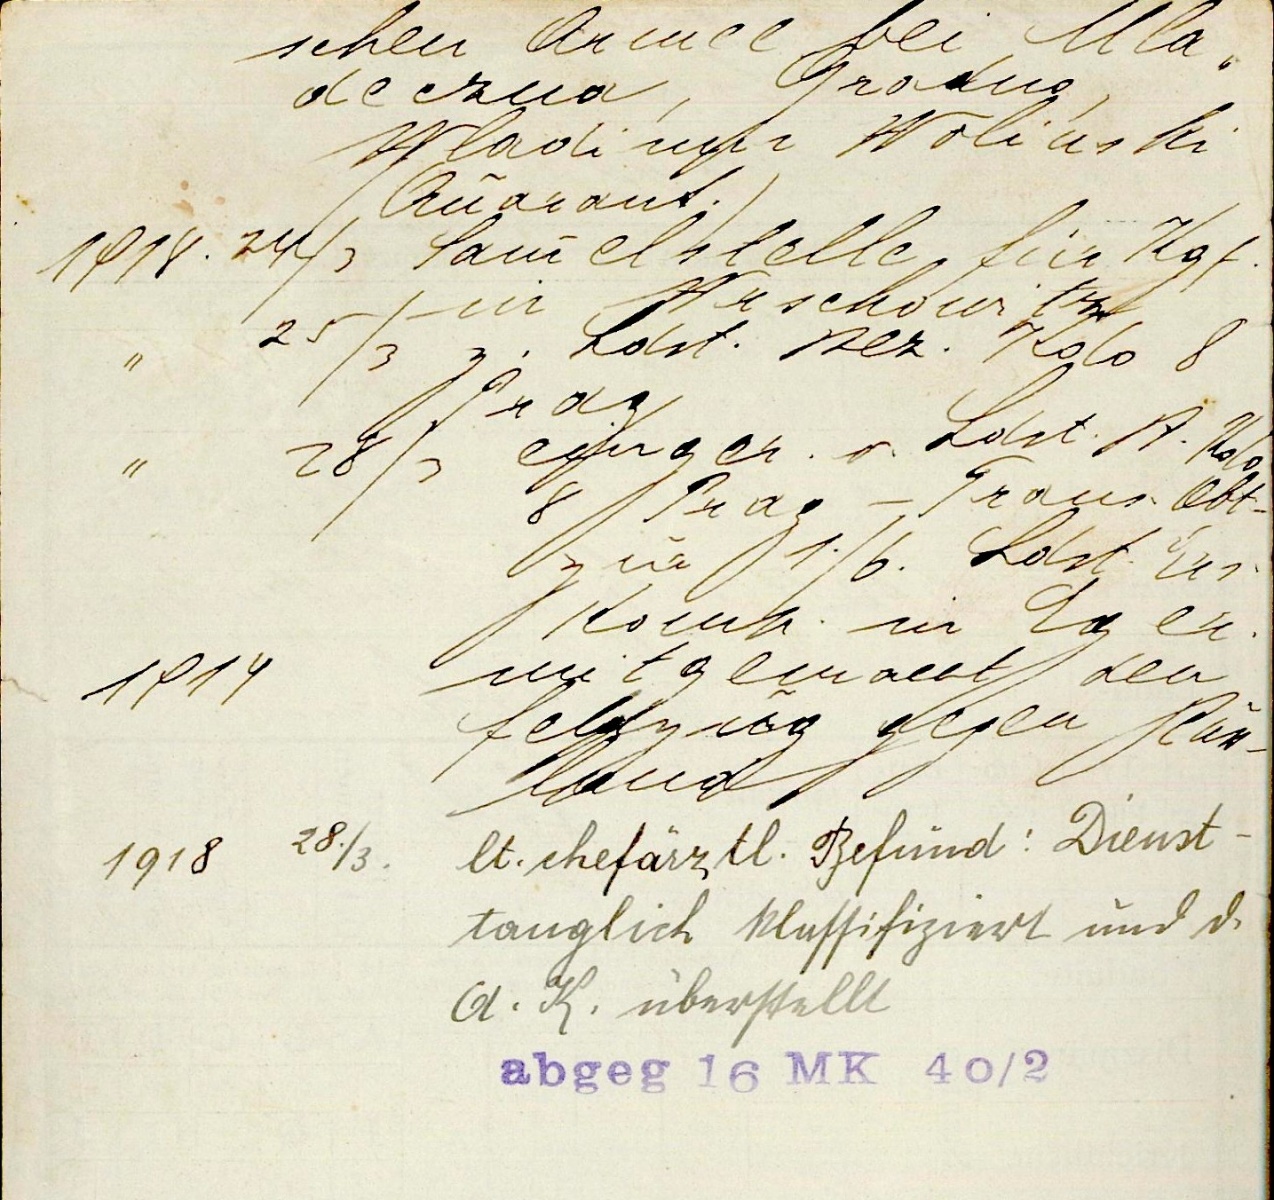 schen Armee bei Mla„
deczna, Grodno,
Wladimyr Wolinski
Quarant.)
1918. 24/3 Samelstelle für Kgf.
in Wrschowitz
" 25/3 z. Ldst. Bez. Kdo 8
Prag
" 28/3 einger. v. Ldst. B. Kdo
8 Prag – Trans. Abt-
zur 1./6. Ldst. Ers.
Komp. in Eger.
1914 mitgemacht den
Feldzug gegen Ruß-
land
1918 28./3. lt. chefärztl. Befund: Dienst-
tauglich klassifiziert und d.
A. K. überstellt
abgeg 16 MK 40/2